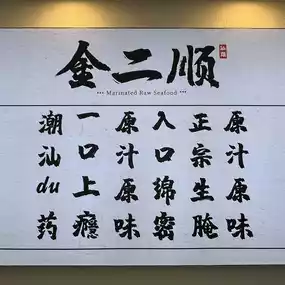 金二顺
*** Marinated Raw Seafood ***
潮汕du药
一口上癮
原汁原味
入口绵密
正宗生腌
原汁原味